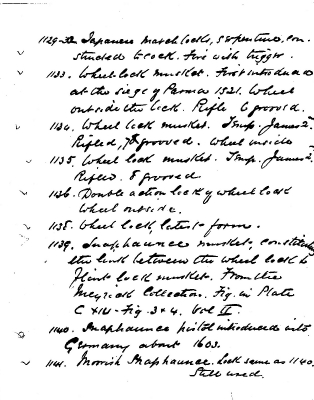 1129-32 Japanese match locks, serpentine, con-
structed to cock. Fire with trigger.
1133. Wheel lock musket. First introduced
at the siege of Parma 1521. Wheel
outside the lock. Rifle 6 grooved.
1134. Wheel lock musket. Temp. James 2nd
Rifled, grooved. Wheel inside
1135. Wheel lock musket. Temp. James 2.
Rifled. 8 grooved
1136. Double action lock of wheel lock
Wheel outside.
1138. Wheel lock, latest form.
1139. Snaphaunce musket, constituting
the link between the wheel lock &
flint lock musket. From the
Meyrick Collection. Fig. in Plate
CXIV - Fig. 3 & 4. Vol II.
1140. Snaphaunce pistol introduced into
Germany about 1603.
1141. Moorish Snaphaunce. Lock same as 1140.
Still used.